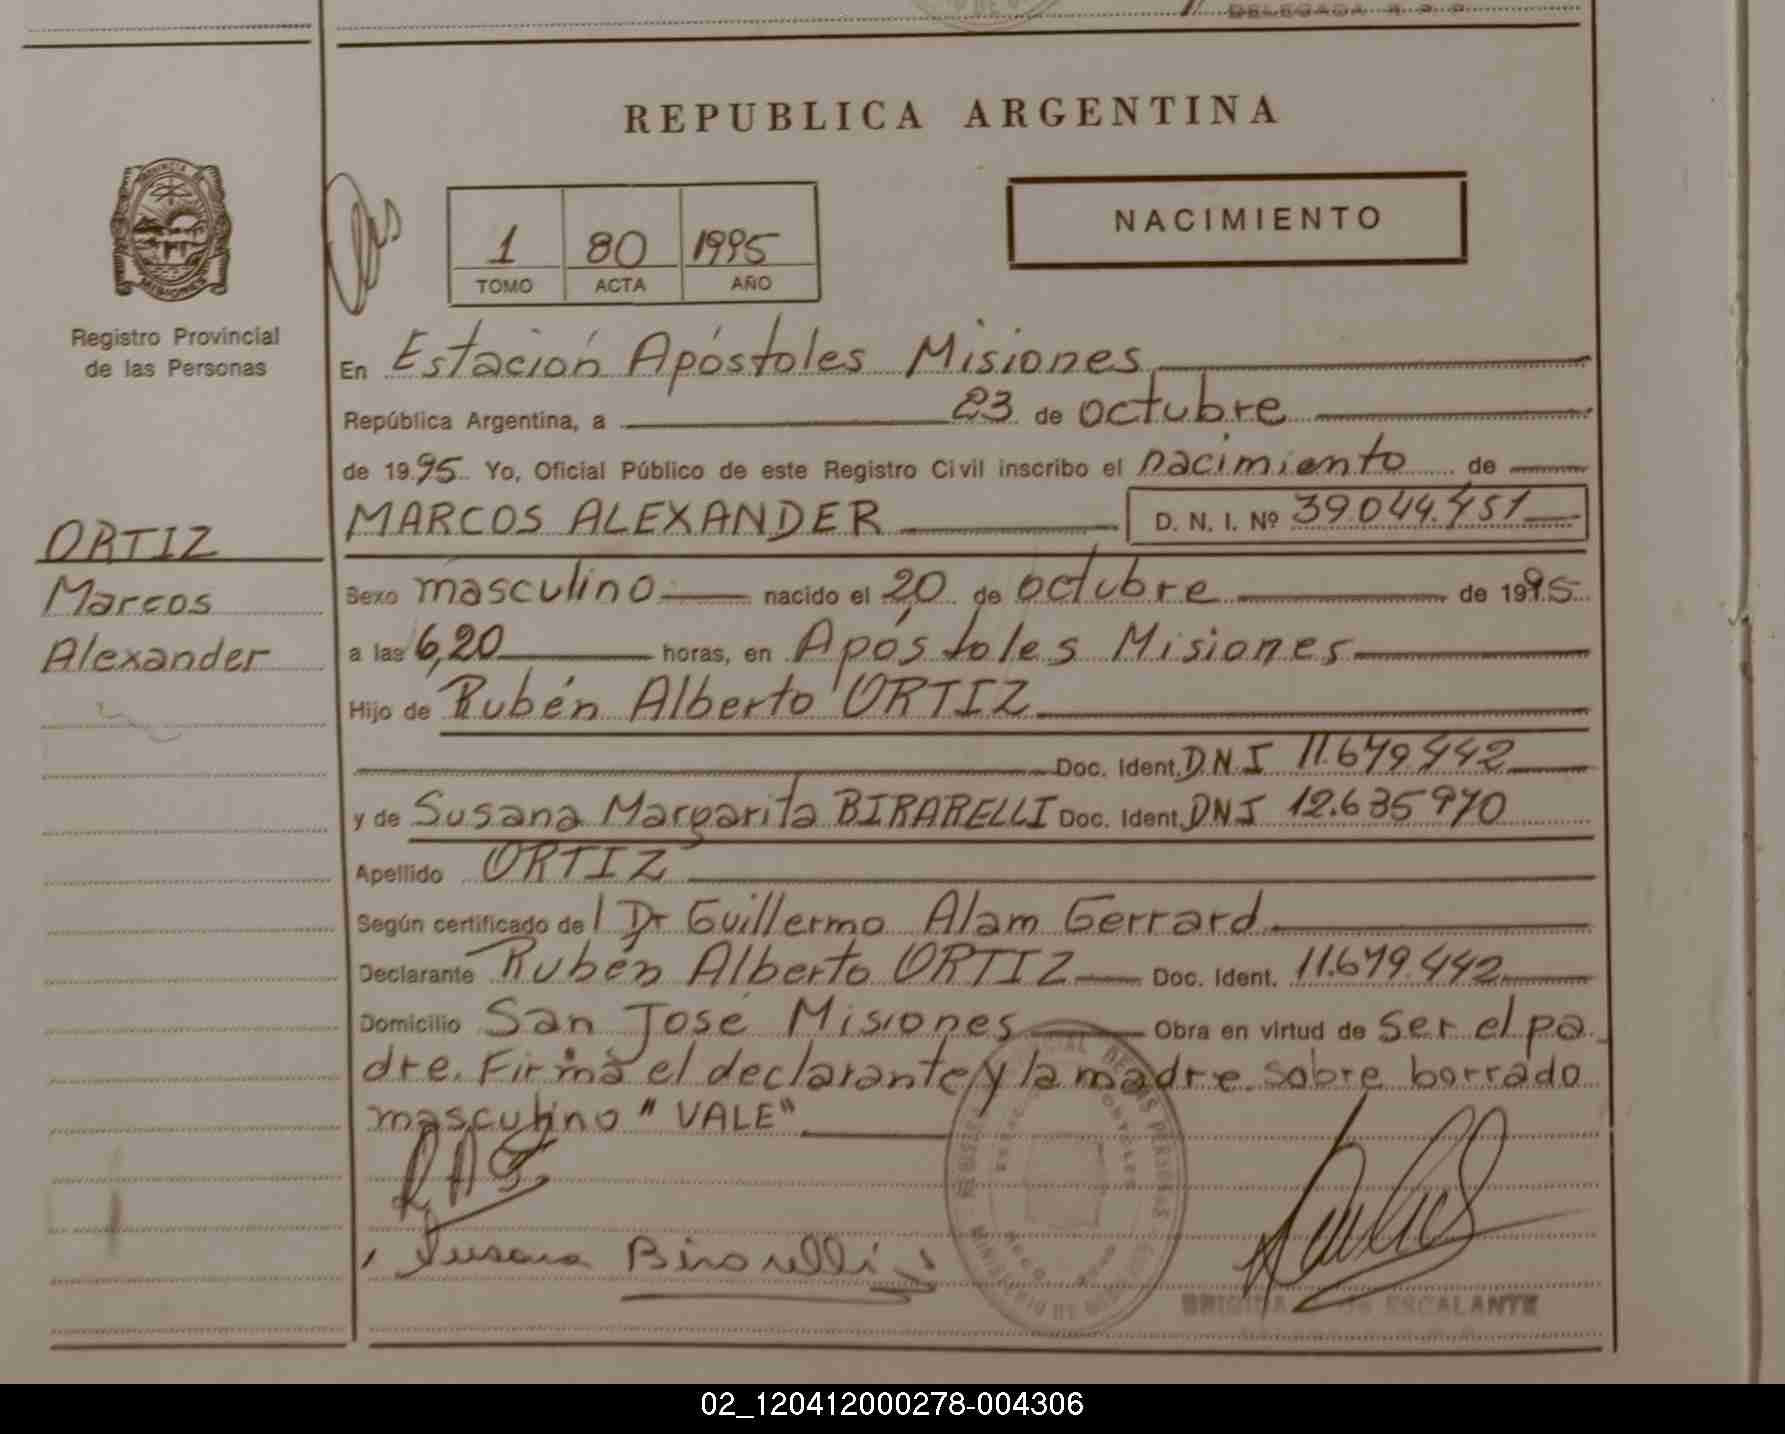 DELEGADA R P P
REPUBLICA ARGENTINA
NACIMIENTO
1 80 1995
TOMO ACTA AÑO
PROVINCIA DE
MISIONES
Registro Provincial
de las Personas
ORTIZ
Marcos
Alexander
En Estación Apóstoles Misiones
República Argentina, a 23 de octubre
de 1995 Yo, Oficial Público de este Registro Civil inscribo el nacimiento de
MARCOS ALEXANDER D. N. I. Nº 39.044.451
Sexo masculino nacido el 20 de octubre de 1995
a las 6,20 horas, en Apóstoles Misiones
Hijo de Rubén Alberto ORTIZ
Doc. Ident. DNI 11.679.442
y de Susana Margarita BIRARELLI Doc. Ident. DNI 12.635970
Apellido ORTIZ
Según certificado del Dr Guillermo Alam Gerrard
Declarante Rubén Alberto ORTIZ Doc. Ident. 11.679.442
Domicilio San José Misiones Obra en virtud de ser el pa
dre. Firma el declarante y la madre. sobre borrado
masculino "VALE"
Susana Birarelli
BRIGIDA DE ESCALANTE
02_120412000278-004306